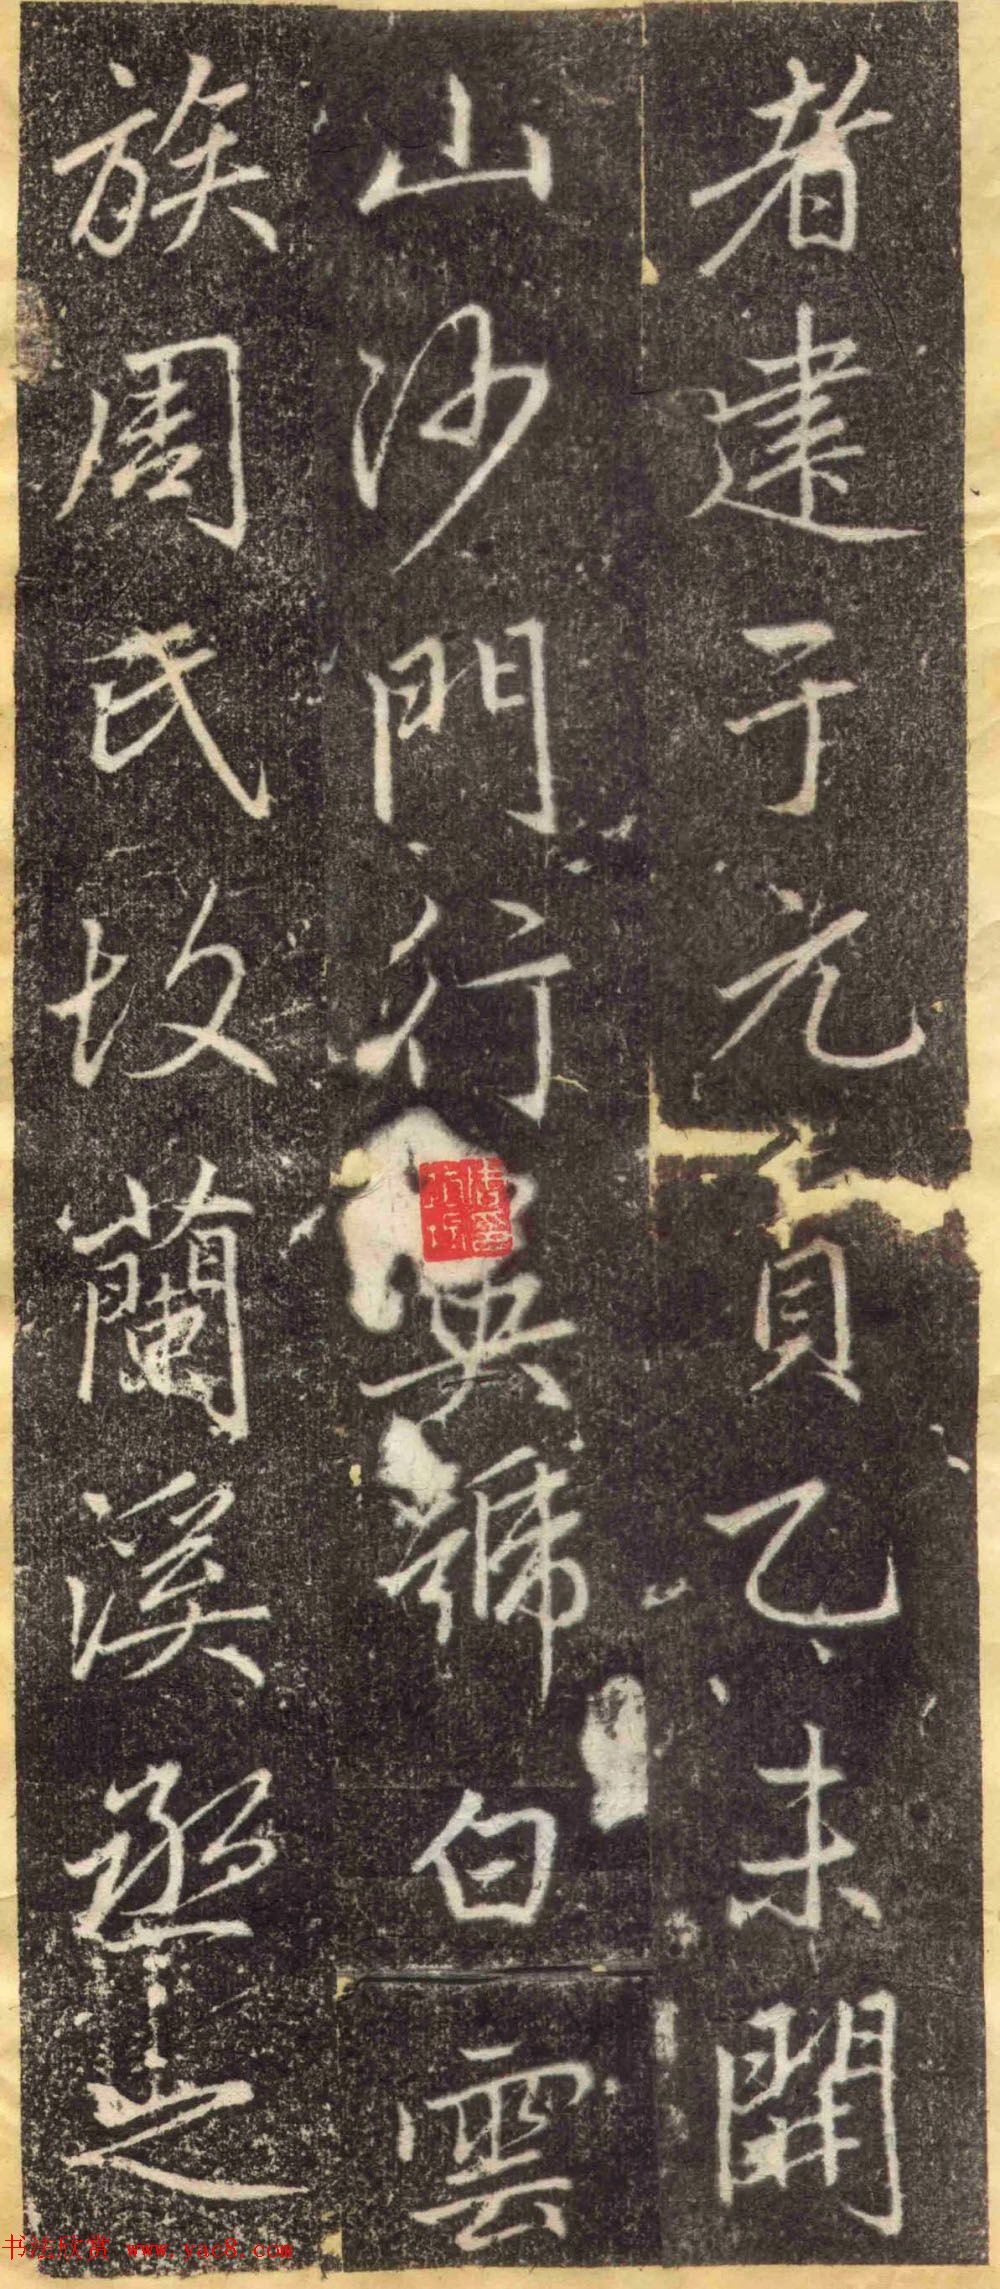 者建于元貞乙未開
山沙門行英號白雲
族周氏故蘭溪丞之
书法欣赏 www.yac8.com